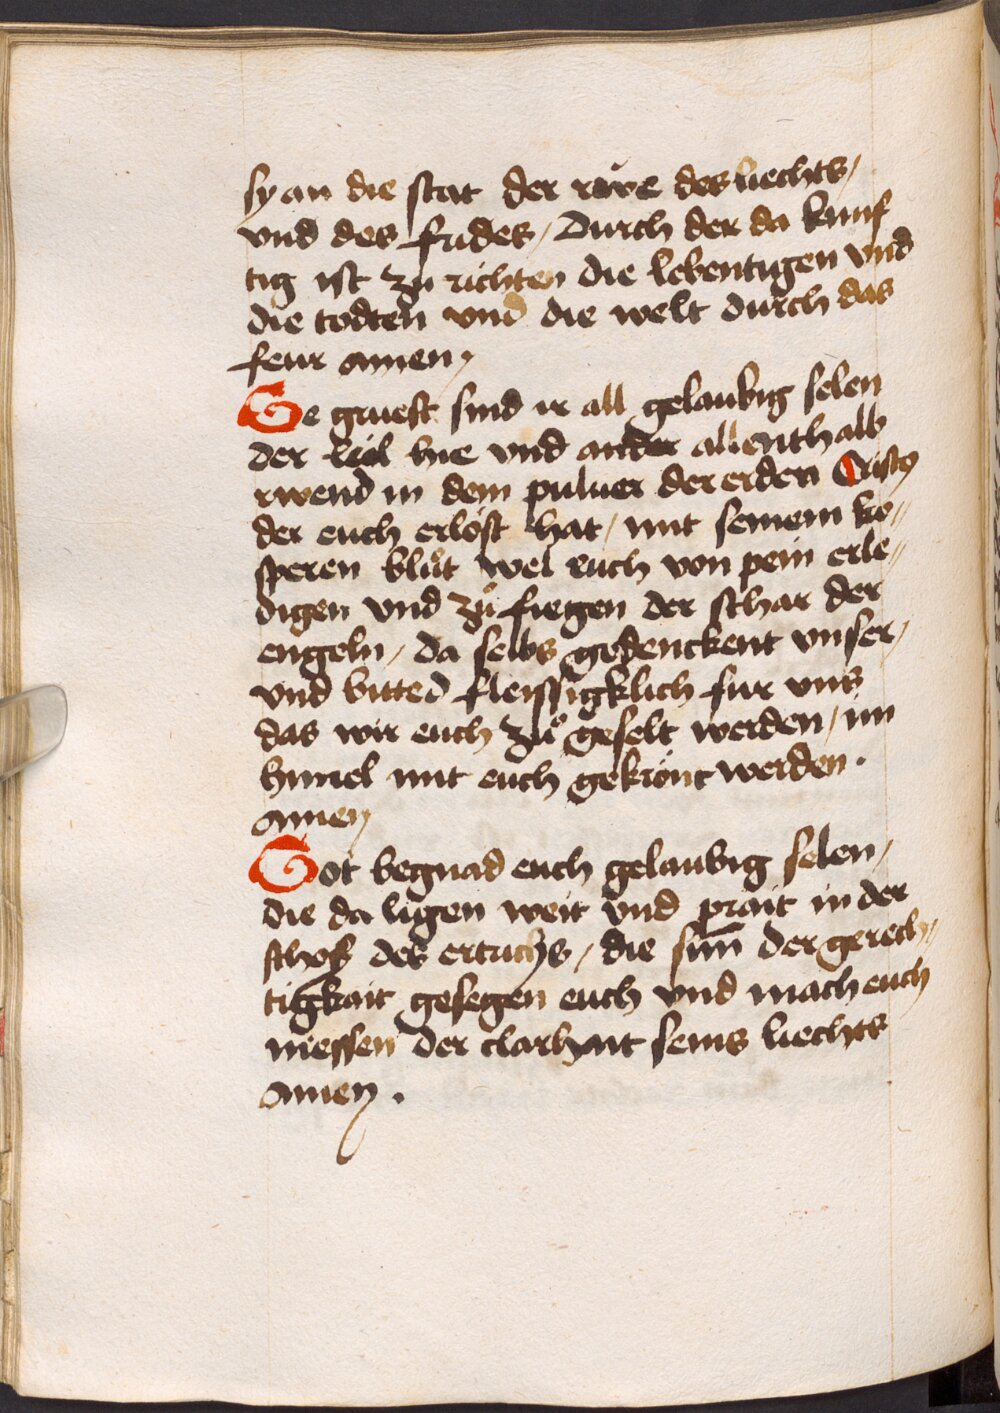 sy an die stat der rwe des liechts /
vnd des frides / Durch der da kunf
tig ist zů richten die lebentigen vnd
die todten vnd die welt durch das
feur amen /
Ge gruest sind ir all gelaubig selen
der leib hie vnd ander allenthalb
rwend in dem puluer der erden Cristus
der euch erlöst hat / mit seinem ko//
speren blůt wel euch von pein erle//
digen vnd zů fuegen der schar der
engeln / da selbs gedenckent vnser /
vnd bitted fleissigklich fur vns
das wir euch zů geselt werden / im
himel mit euch gekrönt werden .
amen
Got begnad euch gelaubig selen /
die da ligen weit vnd prait in der
schoß des ertrichs / die sunn der gerech//
tigkait gesegen euch vnd mach euch
niessen der clarhait seins liechts
amen .